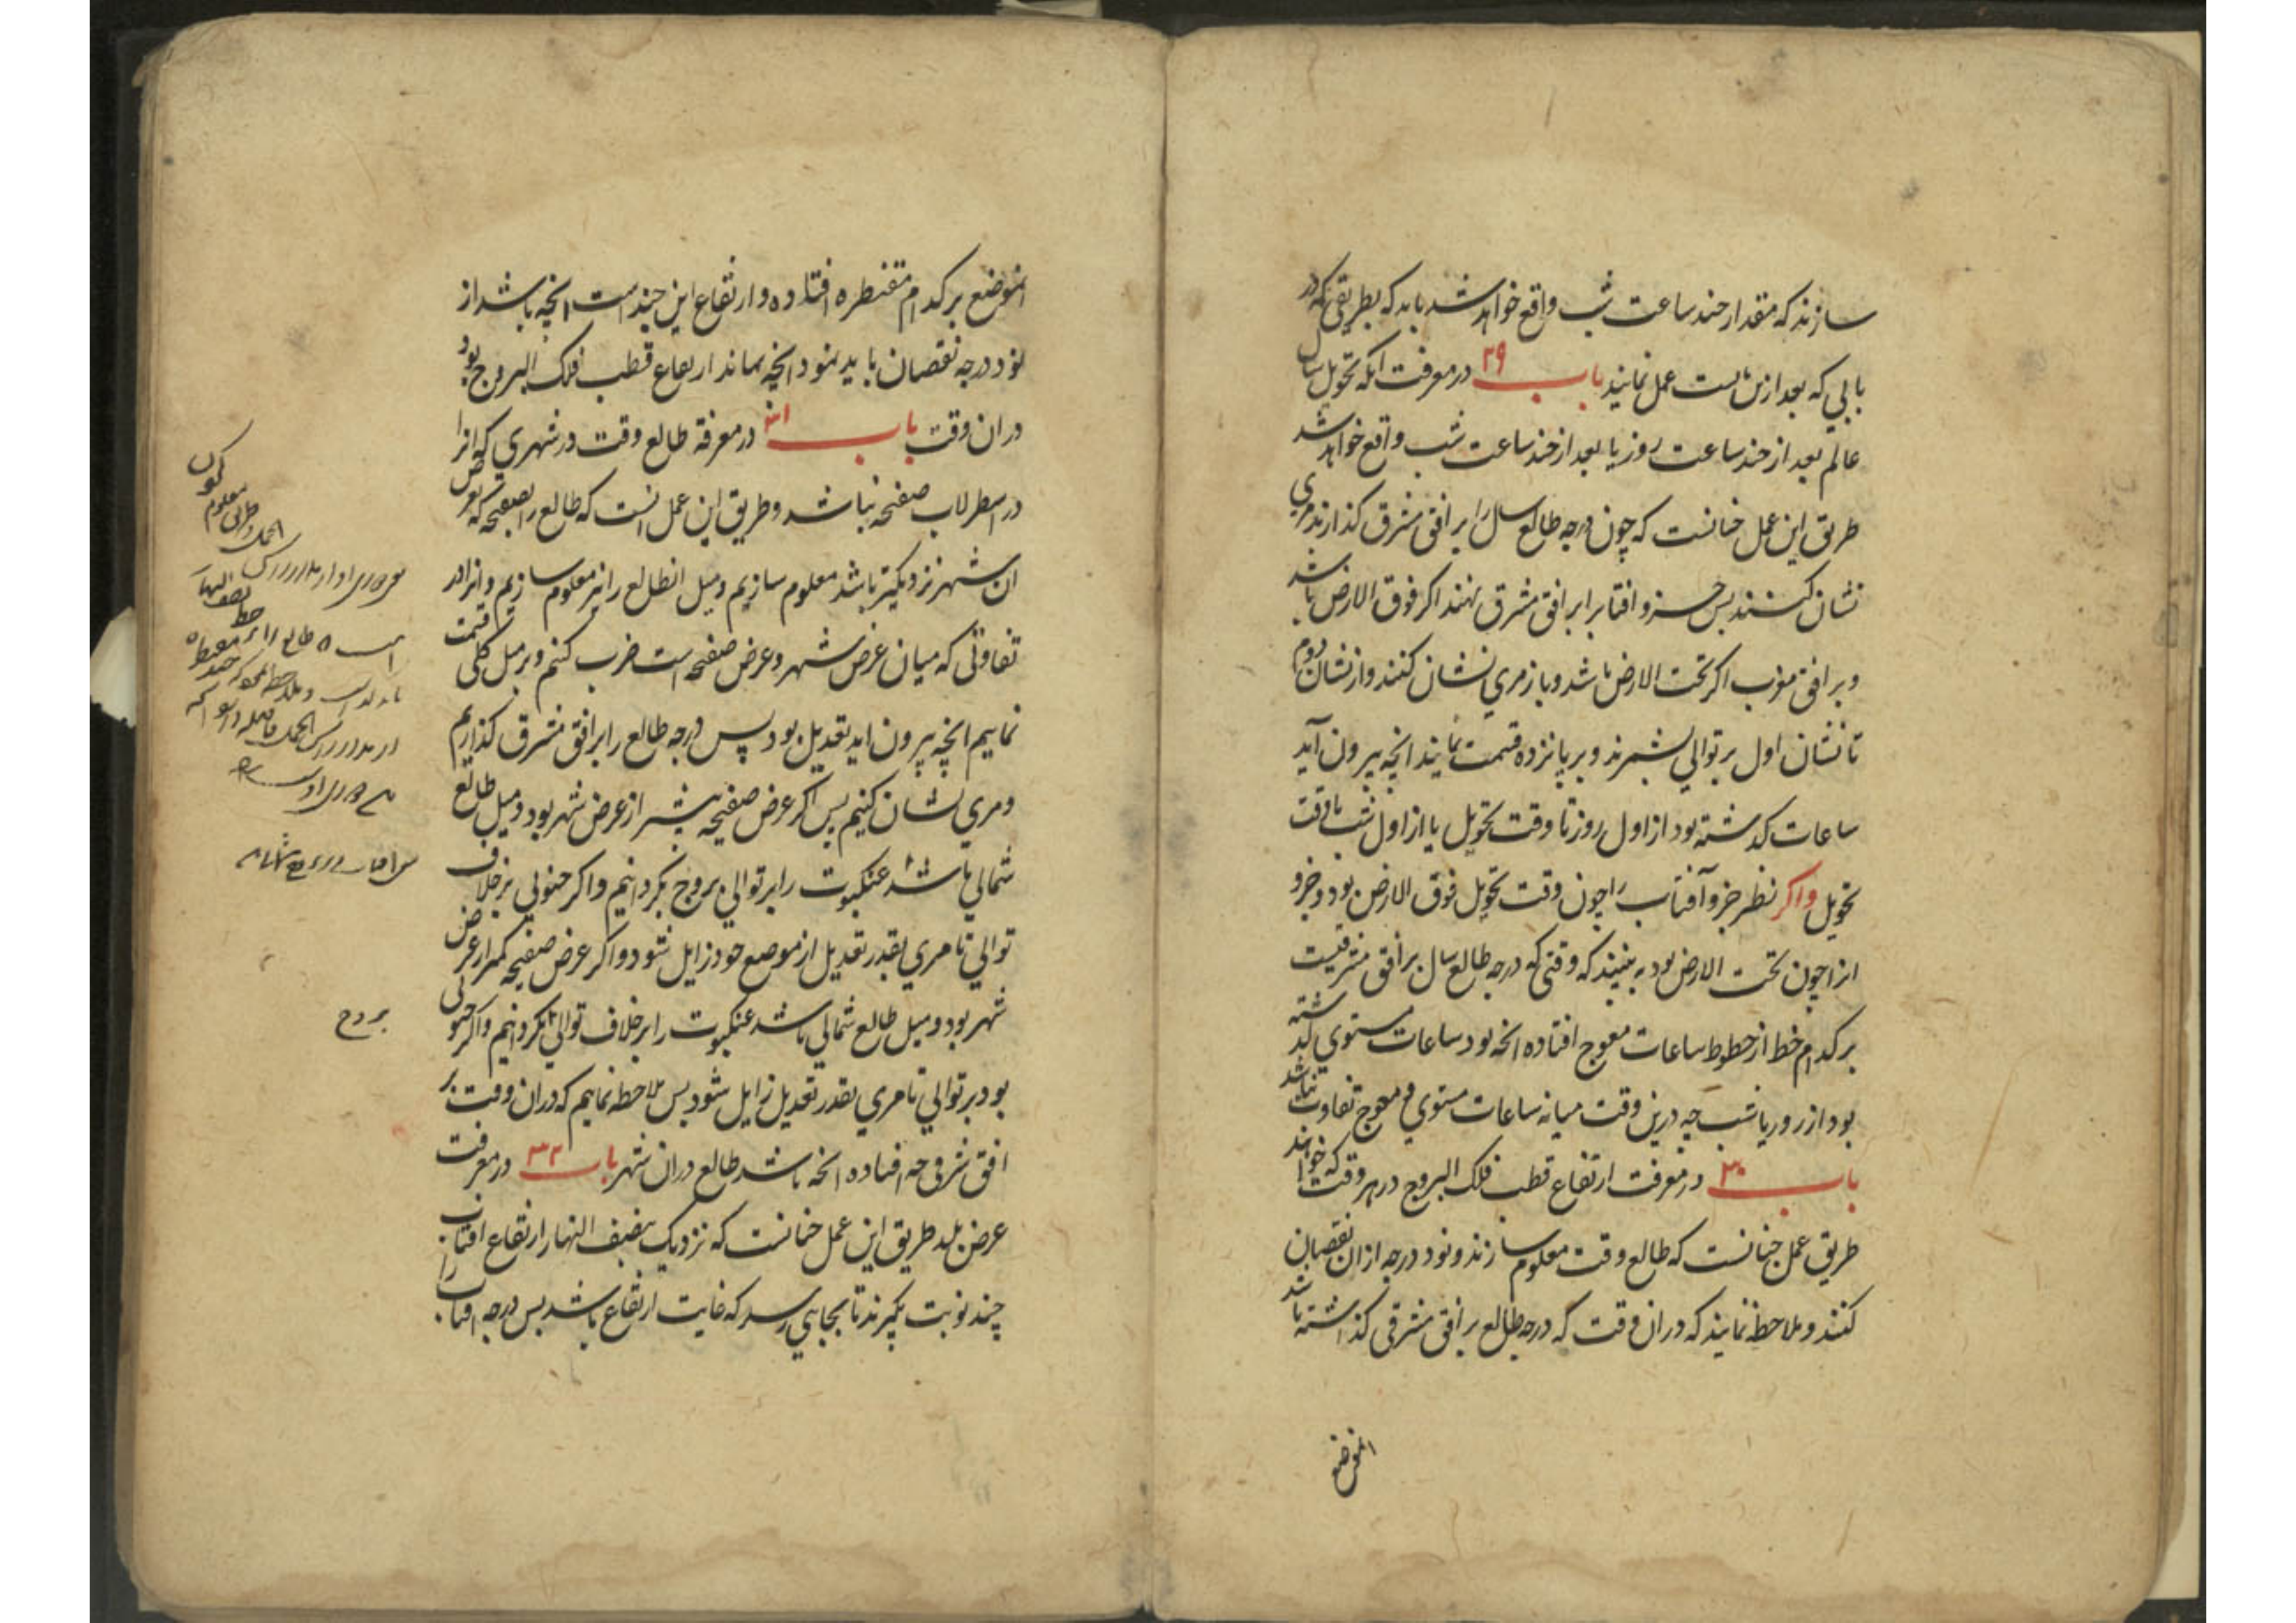 سازند که مقدار چند ساعت شب واقع خواهد شد باید که بطریقی که در
بابی که بعد ازین است عمل نمایند باب ۲۹ در معرفت آنکه تحویل سال
عالم بعد از چند ساعت روز یا بعد از چند ساعت شب واقع خواهد شد
طریق این عمل چنانست که چون درجه طالع سال را بر افق مشرق گذارند مری
نشان کنند پس جزو افتاب را بر افق مشرق نهند اکر فوق الارض باشد
و بر افق مغرب اکر تحت الارض باشد و باز مری نشان کنند و از نشان دوم
تا نشان اول بر توالی بشمرند و بر پانزده قسمت نمایند انچه بیرون آید
ساعات کذشته بود از اول روز تا وقت تحویل یا از اول شب تا وقت
تحویل واکر نظیر جزو آفتاب را چون وقت تحویل فوق الارض بود و جزو
انرا چون تحت الارض بود به بینند که وقتی که درجه طالع سال بر افق مشرقیست
بر کدام خط از خطوط ساعات معوج افتاده انچه بود ساعات مستوی کذشته
بود از روز یا شب چه درین وقت میانه ساعات مستوی و معوج تفاوت نباشد
باب ۳۰ در معرفت ارتفاع قطب فلک البروج در هر وقت که خواهند
طریق عمل چنانست که طالع وقت معلوم سازند و نود درجه از ان نقصان
کنند و ملاحظه نمایند که در ان وقت که درجه طالع بر افق مشرقی کذاشته باشد
انموضع
انموضع بر کدام مقنطره افتاده و ارتفاع این چند است انچه باشد از
نود درجه نقصان باید نمود انچه بماند ارتفاع قطب فلک البروج بود
در ان وقت باب ۳۱ در معرفة طالع وقت در شهری که انرا
در اسطرلاب صفحه نباشد و طریق این عمل انست که طالع را بصفیحه که بعرض
ان شهر نزدیکتر باشد معلوم سازیم و میل انطالع را نیز معلوم سازیم و انرا در
تفاوتی که میان عرض شهر و عرض صفحه است ضرب کنیم و بر میل کلی قسمت
نماییم انچه بیرون اید تعدیل بود پس درجه طالع را بر افق مشرق کذاریم
و مری نشان کنیم پس اکر عرض صفیحه بیشتر از عرض شهر بود و میل طالع
شمالی باشد عنکبوت را بر توالی بروج بکردانیم و اکر جنوبی بر خلاف
توالی تا مری بقدر تعدیل از موضع خود زایل شود و اکر عرض صفیحه کمتر از عرض
شهر بود و میل طالع شمالی باشد عنکبوت را بر خلاف توالی بکردانیم و اکر جنوبی
بود بر توالی تا مری بقدر تعدیل زایل شود پس ملاحظه نماییم که در ان وقت بر
افق شرقی چه افتاده انچه باشد طالع در ان شهر باب ۳۲ در معرفت
عرض بلد طریق این عمل چنانست که نزدیک بنصف النهار ارتفاع افتاب
چند نوبت بکیرند تا بجایی رسد که غایت ارتفاع باشد پس درجه افتاب را
بروج